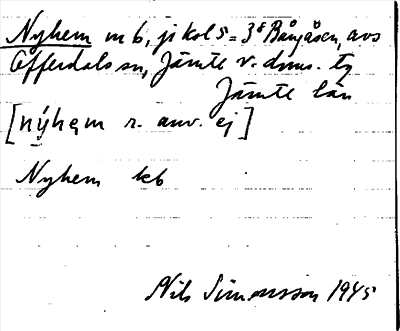 Nyhem m 6, jikol 5 = 3⁸ Bångåsen, avs
Offerdals sn, Jämte v. dms. tg
Jämte län
[nýhem r. anv. ej]
Nyhem kb
Nils Simonsson 1945